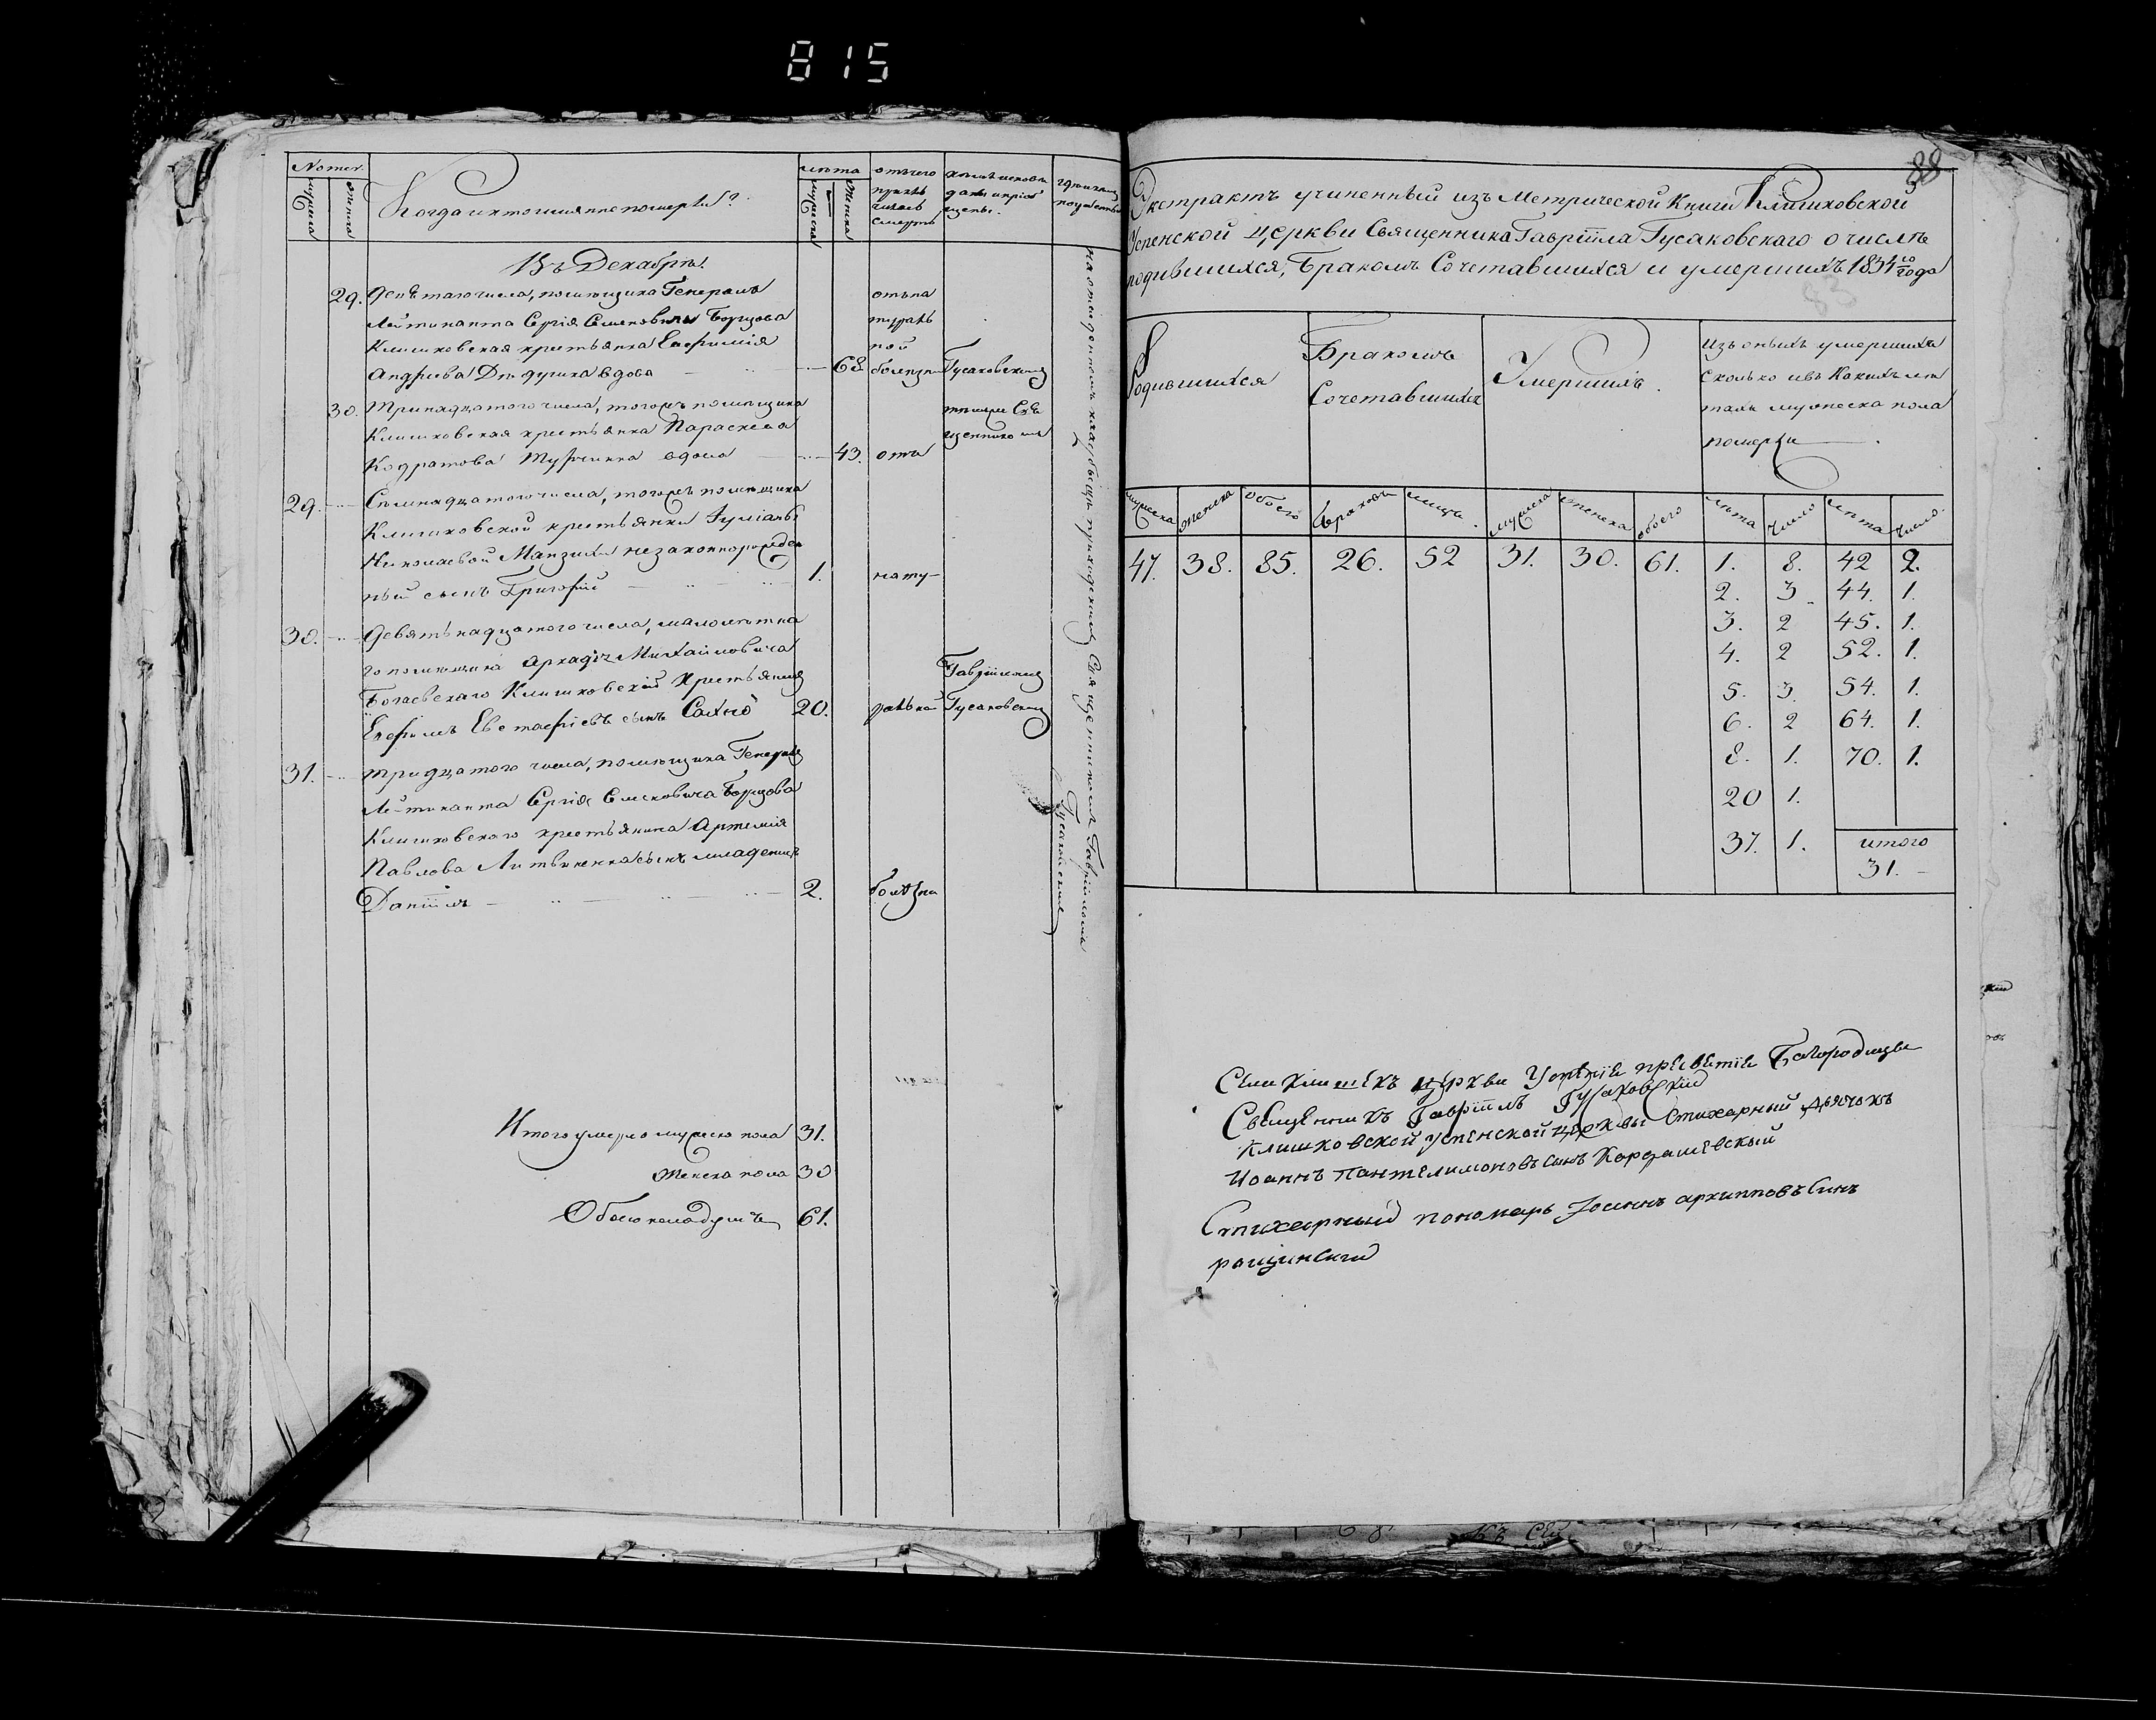 815
Номеръ
мужеска
женска
Когда и кто именно померли?
лѣта
мужеска
женска
отъ чего приключилась смерть
кѣмъ исповѣданы и пріобщены.
гдѣ и кѣмъ погребены
Въ Декабрѣ.
29. числа, помѣщика Генералъ
Лейтинанта Сергія Семеновича Борщова
Клишковская крестьянка Евфимія
Андреева вдова 68.
отъ натуральной болезни
Гусаковскимъ
30. Тринадцатого числа, тогожъ помѣщика
Клишковская крестьянка Параскева
Кодратова вдова 43. отъ
тимже Священникомъ
29. Семнадцатого числа, тогожъ помѣщика
Клишковской крестьянки Іуліаны
Николаевой незаконнорожден
ный сынъ Григорій 1. нату-
30. Девятьнадцатого числа, малолѣтна
го помѣщика Аркадія Михайловича
Клишковской Крестьянинъ
Евфимъ Евстафіевъ сынъ Сахно 20. ральной
Гавріиломъ
Гусаковскимъ
31. Тридцатого числа, помѣщика Генералъ
Лейтинанта Сергія Семеновича Борщова
Клишковского крестьянина Артемія
Павлова Литвиненка сынъ младенецъ
Даніилъ 2. болѣзни
на отведенномъ кладбищѣ приходскимъ Священникомъ Гавріиломъ
Гусаковскимъ
Итого умерло мужеска пола 31.
Женска пола 30
Обоего пола душъ 61.
88
Экстрактъ учиненный изъ Метрической Книги Клишковской
Успенской церкви Священника Гавріила Гусаковскаго о числѣ
родившихся, Бракомъ Сочетавшихся и умершихъ 1834го года
83
Родившихся
Бракомъ
Сочетавшихся
Умершихъ.
Изъ оныхъ умершихъ
сколько и въ какихъ лѣ
тахъ мужеска пола
померли.
мужеска женска обоего браковъ лицъ. мужеска женска обоего лѣта число лѣта число.
47. 38. 85. 26. 52 31. 30. 61. 1. 8. 42 2.
2. 3. 44. 1.
3. 2 45. 1.
4. 2 52. 1.
5. 3. 54. 1.
6. 2 64. 1.
8. 1. 70. 1.
20 1.
37. 1. итого
31.
Села Клишекъ церкви Успенія пресвятія Богородицы
Священникъ Гавріилъ Гусаковскій
Клишковской успенской церквы Стихарный дьячокъ
Иоаннъ Пантелимоновъ сынъ Кордашевскый
Стихарный пономарь Іоаннъ архипповъ Синъ
рощинскій